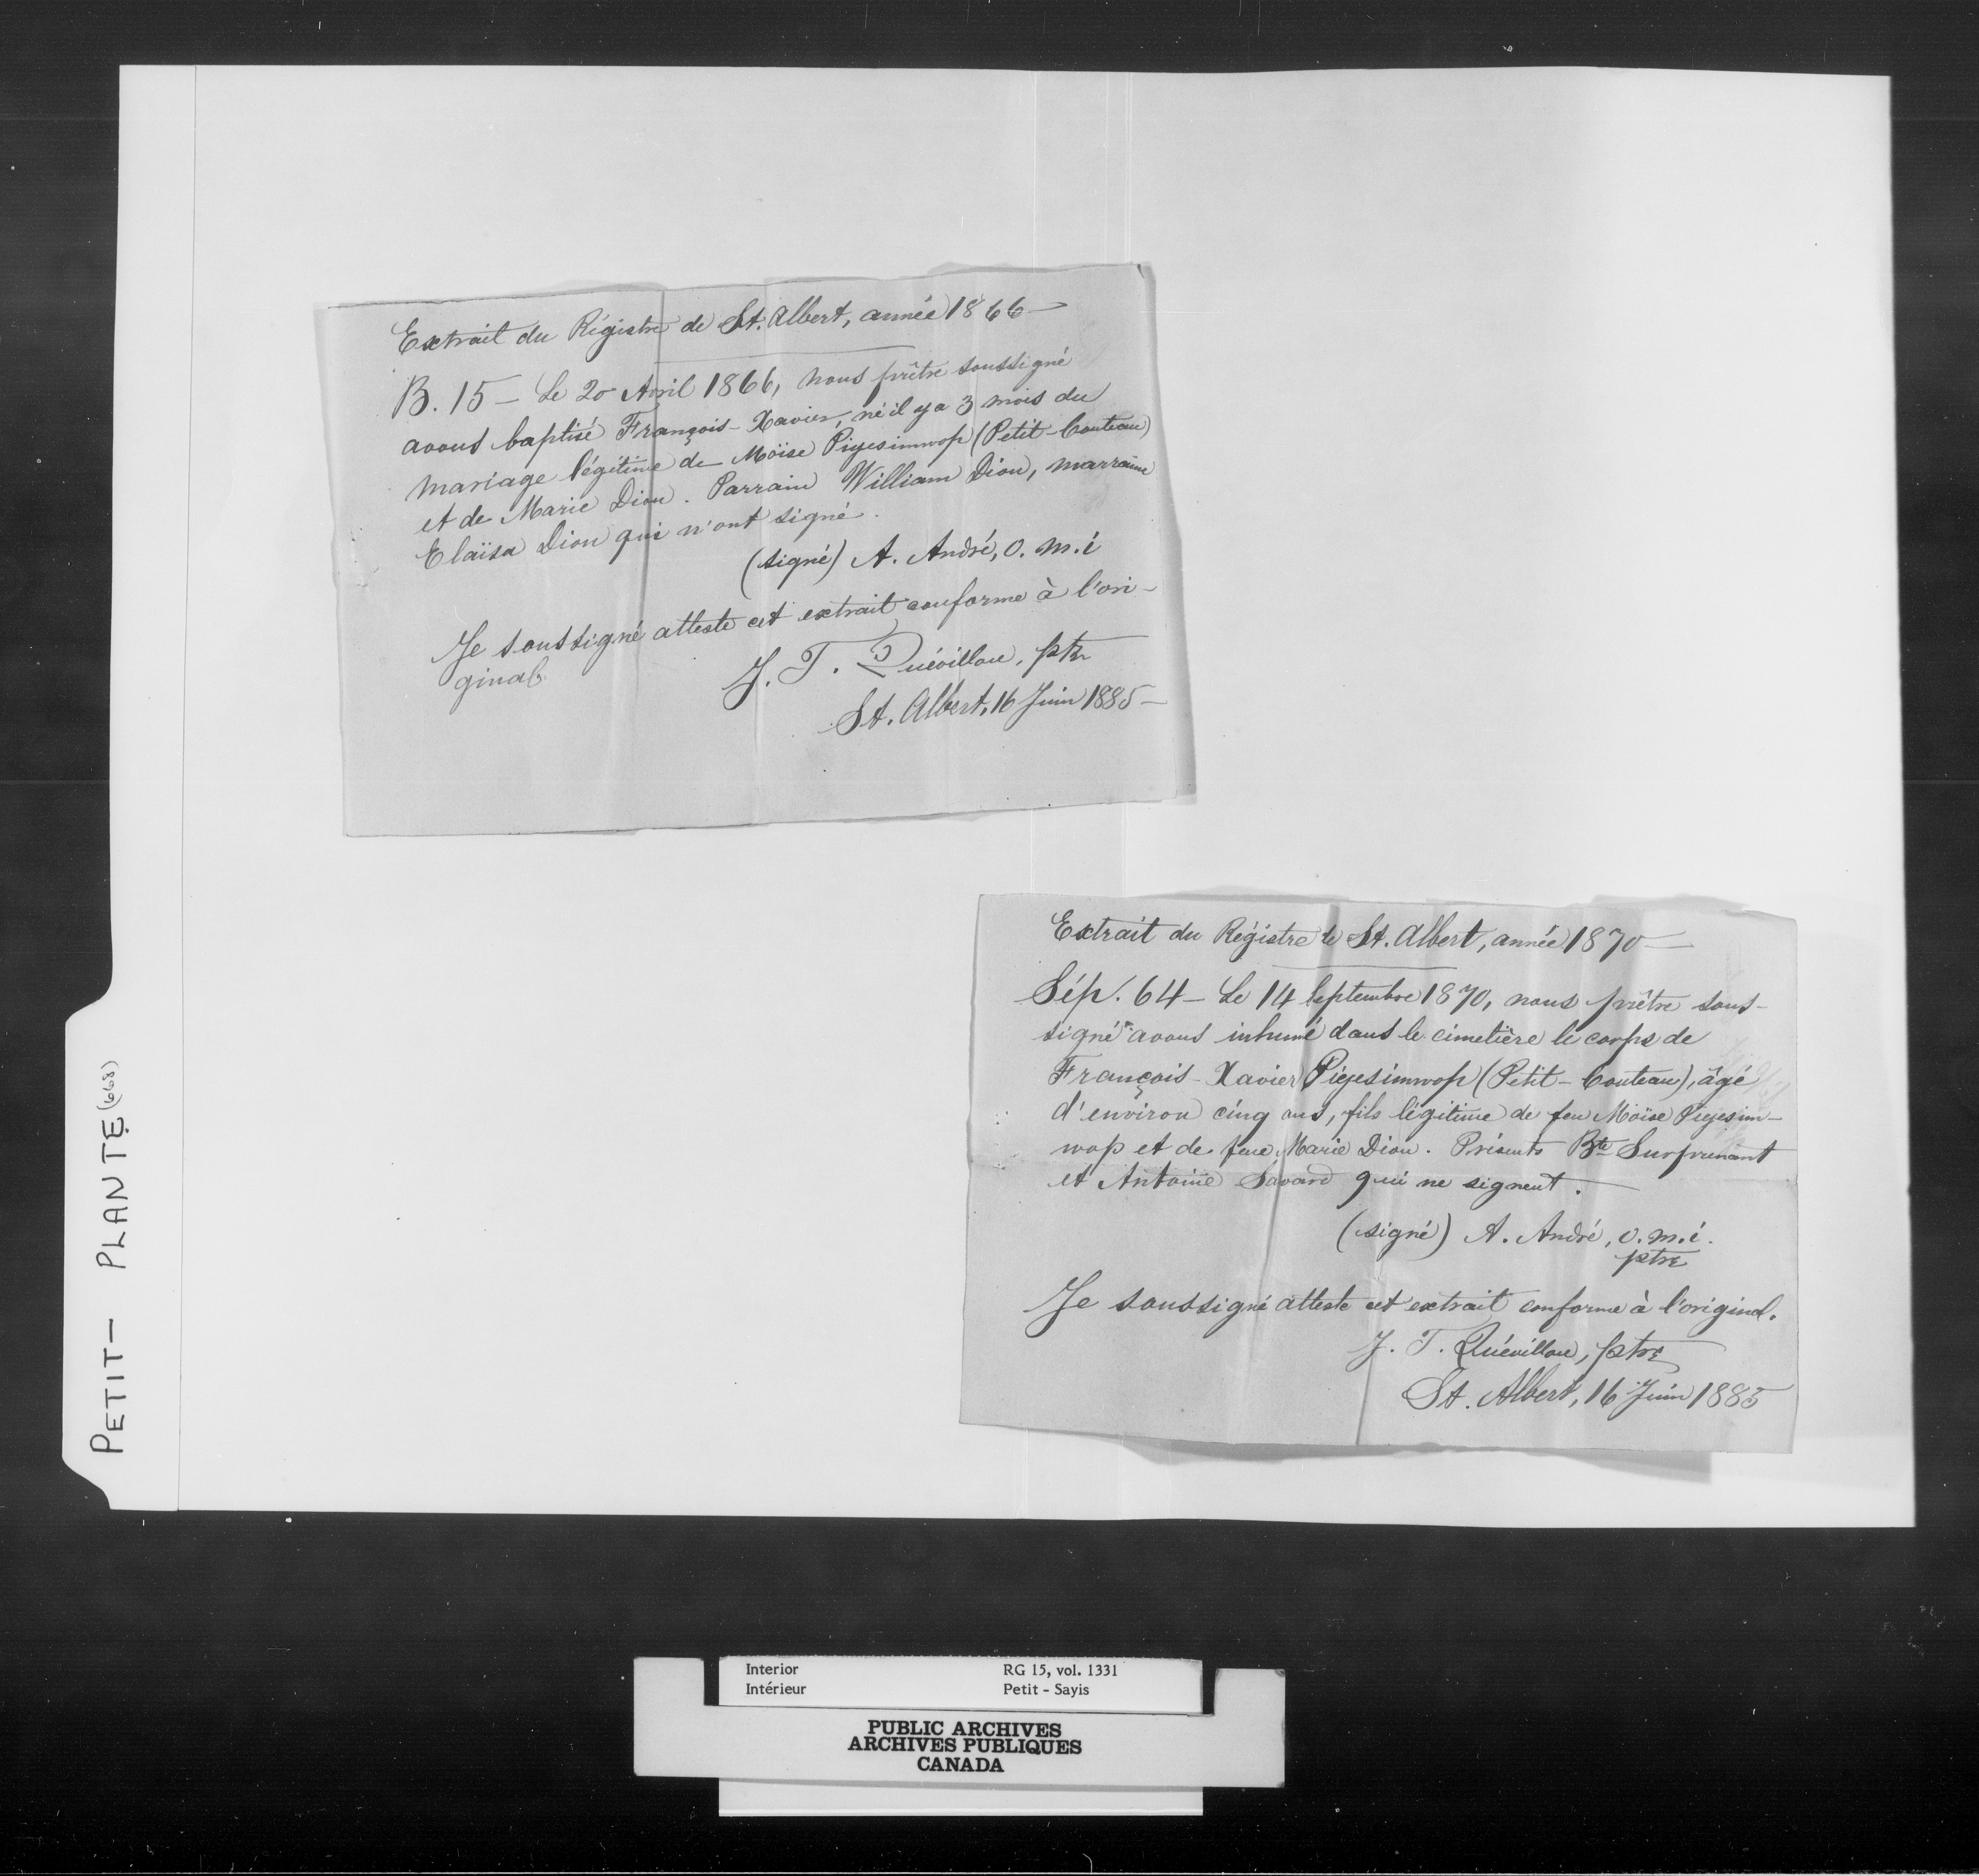 Extrait du Régistre de St. Albert, année 1866 —
B. 15 — Le 20 Avril 1866, nous prêtre soussigné
avons baptisé François-Xavier, né il y a 3 mois du
mariage légitime de Moïse Piyesimwop (Petit-Couteau)
et de Marie Dion. Parrain William Dion, marraine
Elaïsa Dion qui n'ont signé.
(signé) A. André, o.m.i
Je soussigné atteste cet extrait conforme à l'ori-
ginal.
J. T. Quévillon, ptre
St. Albert, 16 Juin 1885 —
Extrait du Régistre de St. Albert, année 1870 —
Sép. 64 — Le 14 Septembre 1870, nous prêtre sous-
signé avons inhumé dans le cimetière le corps de
François-Xavier Piyesimwop (Petit-Couteau), âgé
d'environ cinq ans, fils légitime de feu Moïse Piyesim-
wop et de feue Marie Dion. Présents Bte Surprenant
et Antoine Savard qui ne signent.
(signé) A. André, o.m.i.
ptre
Je soussigné atteste cet extrait conforme à l'original.
J. T. Quévillon, ptre
St. Albert, 16 Juin 1885
PETIT — PLANTE (668)
Interior RG 15, vol. 1331
Intérieur Petit - Sayis
PUBLIC ARCHIVES
ARCHIVES PUBLIQUES
CANADA